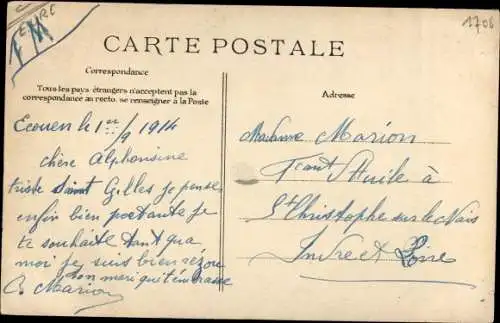 F M
1708
CARTE POSTALE
Correspondance
Tous les pays étrangers n'acceptent pas la
correspondance au recto. se renseigner à la Poste
Adresse
Ecouen le 1er/9 1914
chère Alphonsine
triste Saint Gilles je pense
enfin bien portante je
te souhaite tant qua
moi je suis bien
ton mari qui t'embrasse
Marion
Madame Marion
Huile à
St Christophe sur le Nais
Indre et Loire